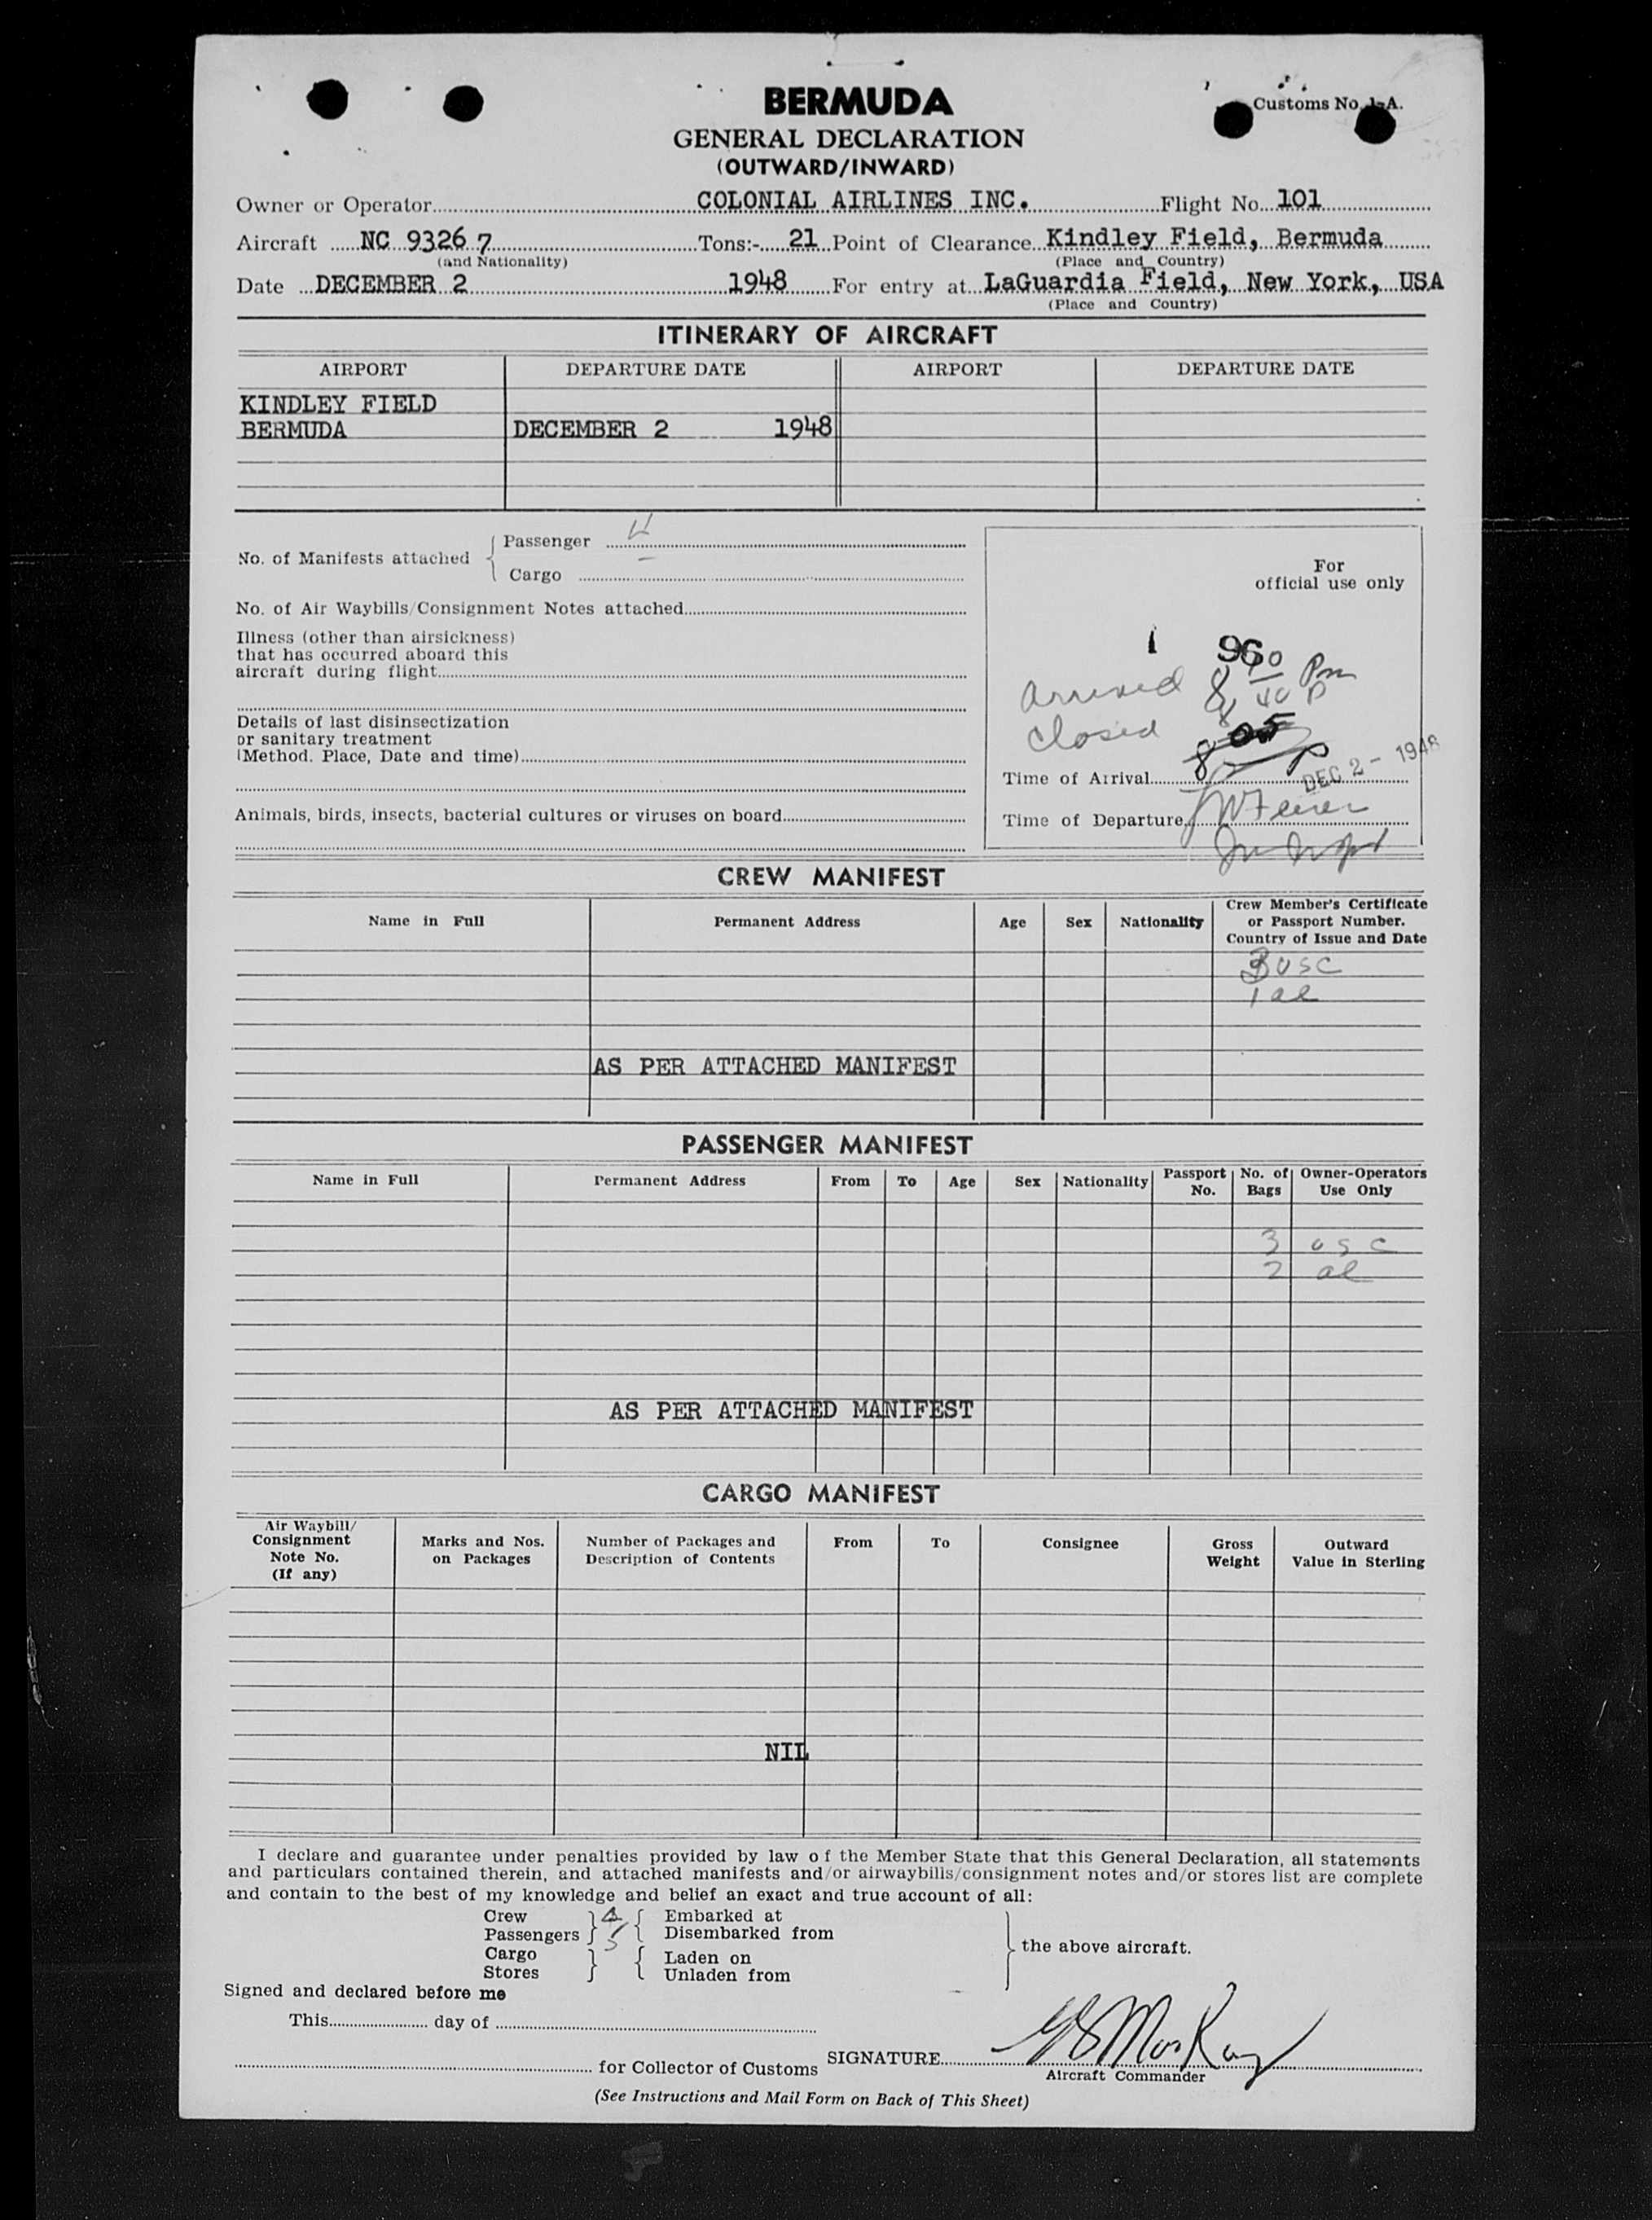 BERMUDA
Customs No. 1-A.
GENERAL DECLARATION
(OUTWARD/INWARD)
Owner or Operator COLONIAL AIRLINES INC. Flight No. 101
Aircraft NC 93267 Tons:- 21 Point of Clearance Kindley Field, Bermuda
(and Nationality) (Place and Country)
Date DECEMBER 2 1948 For entry at LaGuardia Field, New York, USA
(Place and Country)
ITINERARY OF AIRCRAFT
AIRPORT DEPARTURE DATE AIRPORT DEPARTURE DATE
KINDLEY FIELD
BERMUDA DECEMBER 2 1948
No. of Manifests attached
Passenger 4
Cargo
No. of Air Waybills/Consignment Notes attached
Illness (other than airsickness)
that has occurred aboard this
aircraft during flight
Details of last disinsectization
or sanitary treatment
(Method. Place, Date and time)
Animals, birds, insects, bacterial cultures or viruses on board
For
official use only
1 960
arrived 8 Pm
closed 8 40 P
805 P
Time of Arrival DEC 2 - 1948
Time of Departure
CREW MANIFEST
Name in Full Permanent Address Age Sex Nationality Crew Member's Certificate
or Passport Number.
Country of Issue and Date
3 USC
1 al
AS PER ATTACHED MANIFEST
PASSENGER MANIFEST
Name in Full Permanent Address From To Age Sex Nationality Passport No. No. of Bags Owner-Operators Use Only
3 usc
2 al
AS PER ATTACHED MANIFEST
CARGO MANIFEST
Air Waybill/
Consignment
Note No.
(If any)
Marks and Nos.
on Packages
Number of Packages and
Description of Contents
From To Consignee Gross
Weight
Outward
Value in Sterling
NIL
I declare and guarantee under penalties provided by law of the Member State that this General Declaration, all statements
and particulars contained therein, and attached manifests and/or airwaybills/consignment notes and/or stores list are complete
and contain to the best of my knowledge and belief an exact and true account of all:
Crew 4 Embarked at
Passengers 5 Disembarked from
Cargo Laden on
Stores Unladen from
the above aircraft.
Signed and declared before me
This day of
for Collector of Customs SIGNATURE G S MacKay
Aircraft Commander
(See Instructions and Mail Form on Back of This Sheet)